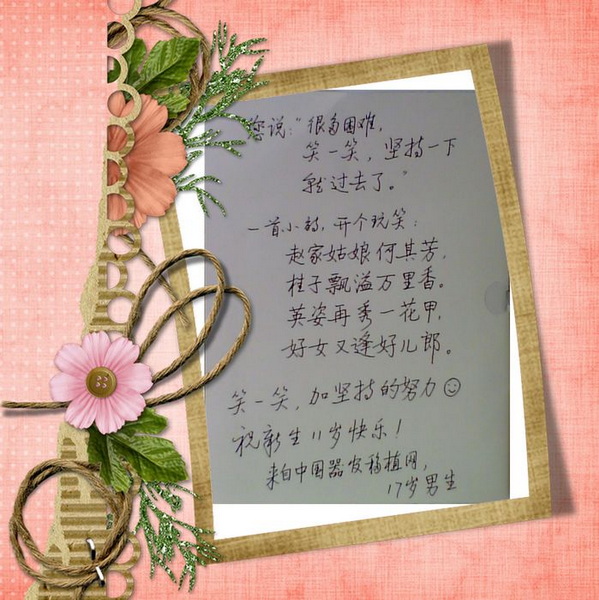 您说:“很多困难,
笑一笑,坚持一下
就过去了。”
一首小诗,开个玩笑:
赵家姑娘何其芳,
桂子飘溢万里香。
英姿再秀一花甲,
好女又逢好儿郎。
笑一笑,加坚持的努力☺
祝新生11岁快乐!
来自中国器官移植网,
17岁男生